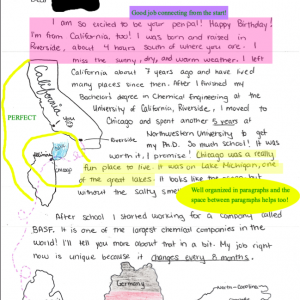 Good job connecting from the start!
I am so excited to be your penpal! Happy Birthday!
I'm from California, too! I was born and raised in
Riverside, about 4 hours south of where you are. I
miss the sunny, dry, and warm weather. I left
California about 7 years ago and have lived
many places since then. After I finished my
Bachelor's degree in Chemical Engineering at the
University of California, Riverside, I moved to
Chicago and spent another 5 years at
Northwestern University to get
my Ph.D. So much school! It was
worth it, I promise! Chicago was a really
fun place to live. It was on Lake Michigan, one
of the great lakes. It looks like the
without the salty
California
you
PERFECT
Riverside
Illinois
Chicago
Well organized in paragraphs and the
space between paragraphs helps too!
After school I started working for a company called
BASF. It is one of the largest chemical companies in the
world! I'll tell you more about that in a bit. My job right
now is unique because it changes every 8 months.
Germany
North Carolina